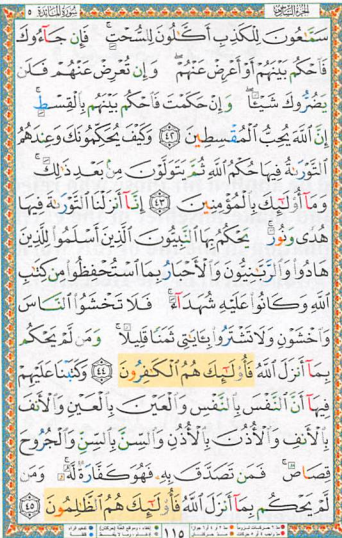 الجزء السادس سورة المائدة ٥
سَمَّٰعُونَ لِلۡكَذِبِ أَكَّٰلُونَ لِلسُّحۡتِۚ فَإِن جَآءُوكَ
فَٱحۡكُم بَيۡنَهُمۡ أَوۡ أَعۡرِضۡ عَنۡهُمۡۖ وَإِن تُعۡرِضۡ عَنۡهُمۡ فَلَن
يَضُرُّوكَ شَيۡـٔٗاۖ وَإِنۡ حَكَمۡتَ فَٱحۡكُم بَيۡنَهُم بِٱلۡقِسۡطِۚ
إِنَّ ٱللَّهَ يُحِبُّ ٱلۡمُقۡسِطِينَ ٤٢ وَكَيۡفَ يُحَكِّمُونَكَ وَعِندَهُمُ
ٱلتَّوۡرَىٰةُ فِيهَا حُكۡمُ ٱللَّهِ ثُمَّ يَتَوَلَّوۡنَ مِنۢ بَعۡدِ ذَٰلِكَۚ
وَمَآ أُوْلَٰٓئِكَ بِٱلۡمُؤۡمِنِينَ ٤٣ إِنَّآ أَنزَلۡنَا ٱلتَّوۡرَىٰةَ فِيهَا
هُدٗى وَنُورٞۚ يَحۡكُمُ بِهَا ٱلنَّبِيُّونَ ٱلَّذِينَ أَسۡلَمُواْ لِلَّذِينَ
هَادُواْ وَٱلرَّبَّٰنِيُّونَ وَٱلۡأَحۡبَارُ بِمَا ٱسۡتُحۡفِظُواْ مِن كِتَٰبِ
ٱللَّهِ وَكَانُواْ عَلَيۡهِ شُهَدَآءَۚ فَلَا تَخۡشَوُاْ ٱلنَّاسَ
وَٱخۡشَوۡنِ وَلَا تَشۡتَرُواْ بِـَٔايَٰتِي ثَمَنٗا قَلِيلٗاۚ وَمَن لَّمۡ يَحۡكُم
بِمَآ أَنزَلَ ٱللَّهُ فَأُوْلَٰٓئِكَ هُمُ ٱلۡكَٰفِرُونَ ٤٤ وَكَتَبۡنَا عَلَيۡهِمۡ
فِيهَآ أَنَّ ٱلنَّفۡسَ بِٱلنَّفۡسِ وَٱلۡعَيۡنَ بِٱلۡعَيۡنِ وَٱلۡأَنفَ
بِٱلۡأَنفِ وَٱلۡأُذُنَ بِٱلۡأُذُنِ وَٱلسِّنَّ بِٱلسِّنِّ وَٱلۡجُرُوحَ
قِصَاصٞۚ فَمَن تَصَدَّقَ بِهِۦ فَهُوَ كَفَّارَةٞ لَّهُۥۚ وَمَن
لَّمۡ يَحۡكُم بِمَآ أَنزَلَ ٱللَّهُ فَأُوْلَٰٓئِكَ هُمُ ٱلظَّٰلِمُونَ ٤٥
١١٥